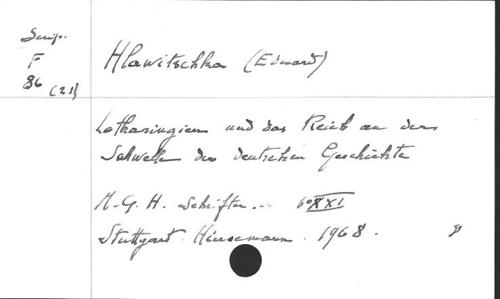 Scrip.
F
86 (21)
Hlawitschka (Eduard)
Lotharingien und das Reich an der
Schwelle der deutschen Geschichte
M.G.H. Schriften... XXI
Stuttgart Hiersemann. 1968.